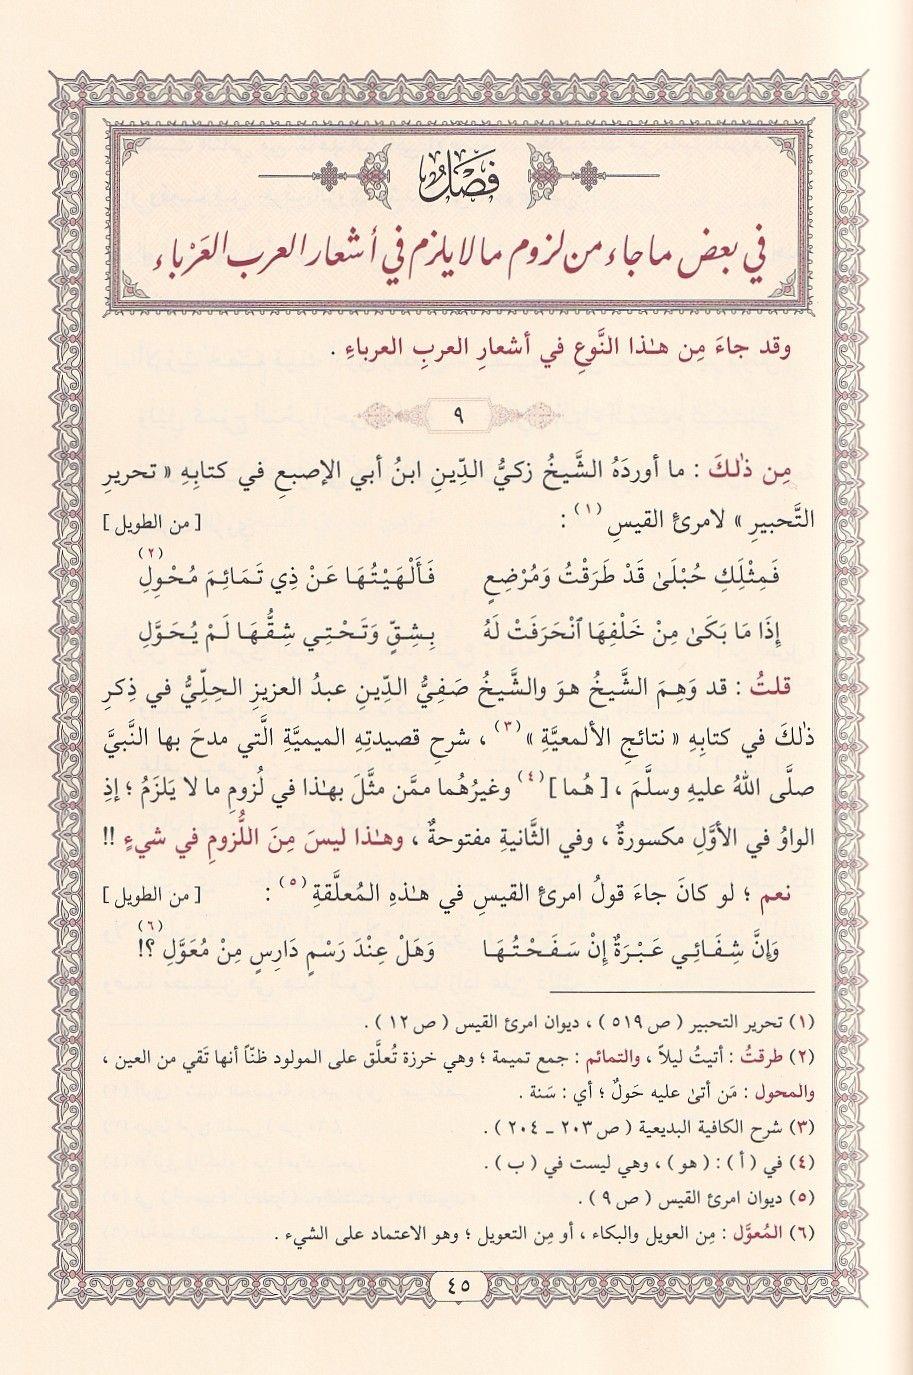 فَصْلٌ
في بعض ما جاء من لزوم ما لا يلزم في أشعار العرب العَرْباء
وقد جاءَ مِن هـٰذا النَّوعِ في أشعارِ العربِ العرباءِ .
٩
مِن ذٰلكَ : ما أوردَهُ الشَّيخُ زكيُّ الدِّينِ ابنُ أبي الإصبعِ في كتابِهِ « تحريرِ
التَّحبيرِ » لامرئِ القيسِ (١) : [ من الطويل ]
فَمِثْلَكِ حُبْلَىٰ قَدْ طَرَقْتُ وَمُرْضِعٍ فَأَلْهَيْتُهَا عَنْ ذِي تَمَائِمَ مُحْوِلِ (٢)
إِذَا مَا بَكَىٰ مِنْ خَلْفِهَا ٱنْحَرَفَتْ لَهُ بِشِقٍّ وَتَحْتِي شِقُّهَا لَمْ يُحَوَّلِ
قلتُ : قد وَهِمَ الشَّيخُ هوَ والشَّيخُ صَفِيُّ الدِّينِ عبدُ العزيزِ الحِلِّيُّ في ذِكرِ
ذٰلكَ في كتابِهِ « نتائجِ الألمعيَّةِ » (٣) ، شرحِ قصيدتِهِ الميميَّةِ الَّتي مدحَ بها النَّبيَّ
صلَّى اللهُ عليهِ وسلَّمَ ، [ هُما ] (٤) وغيرُهُما ممَّن مثَّلَ بهـٰذا في لُزومِ ما لا يَلزَمُ ؛ إذِ
الواوُ في الأوَّلِ مكسورةٌ ، وفي الثَّانيةِ مفتوحةٌ ، وهـٰذا ليسَ مِنَ اللُّزومِ في شيءٍ !!
نعم ؛ لو كانَ جاءَ قولُ امرئِ القيسِ في هـٰذهِ المُعلَّقةِ (٥) : [ من الطويل ]
وَإِنَّ شِفَائِي عَبْرَةٌ إِنْ سَفَحْتُهَا وَهَلْ عِنْدَ رَسْمٍ دَارِسٍ مِنْ مُعَوَّلِ (٦) ؟!
(١) تحرير التحبير ( ص ٥١٩ ) ، ديوان امرئ القيس ( ص ١٢ ) .
(٢) طرقتُ : أتيتُ ليلاً ، والتمائم : جمع تميمة ؛ وهي خرزة تُعلَّق على المولود ظنّاً أنها تَقي من العين ،
والمحول : مَن أتىٰ عليه حَولٌ ؛ أي : سَنة .
(٣) شرح الكافية البديعية ( ص ٢٠٣ - ٢٠٤ ) .
(٤) في ( أ ) : ( هو ) ، وهي ليست في ( ب ) .
(٥) ديوان امرئ القيس ( ص ٩ ) .
(٦) المُعوَّل : مِن العويل والبكاء ، أو مِن التعويل ؛ وهو الاعتماد على الشيء .
٤٥